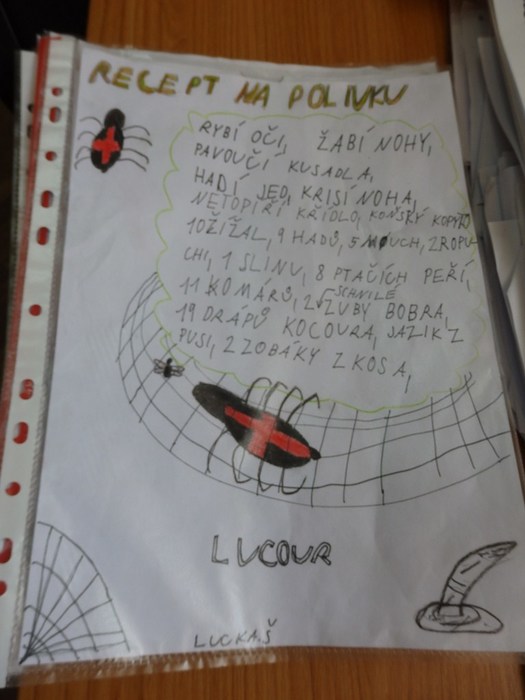 RECEPT NA POLIVKU
RYBÍ OČI, ŽABÍ NOHY,
PAVOUČÍ KUSADLA,
HADÍ JED, KRISÍ NOHA,
NETOPÍŘÍ KŘÍDLO, KOŇSKÝ KOPYTO
10 ŽÍŽAL, 9 HADŮ, 5 MOUCH, 2 ROPU
CHI, 1 SLINU, 8 PTAČÍCH PEŘÍ,
SCHNILÉ
11 KOMÁRŮ, 2 ZUBY BOBRA,
19 DRÁPŮ KOCOURA, JAZIK Z
PUSI, 2 ZOBÁKY Z KOSA,
LUCOUR
LUCKAŠ